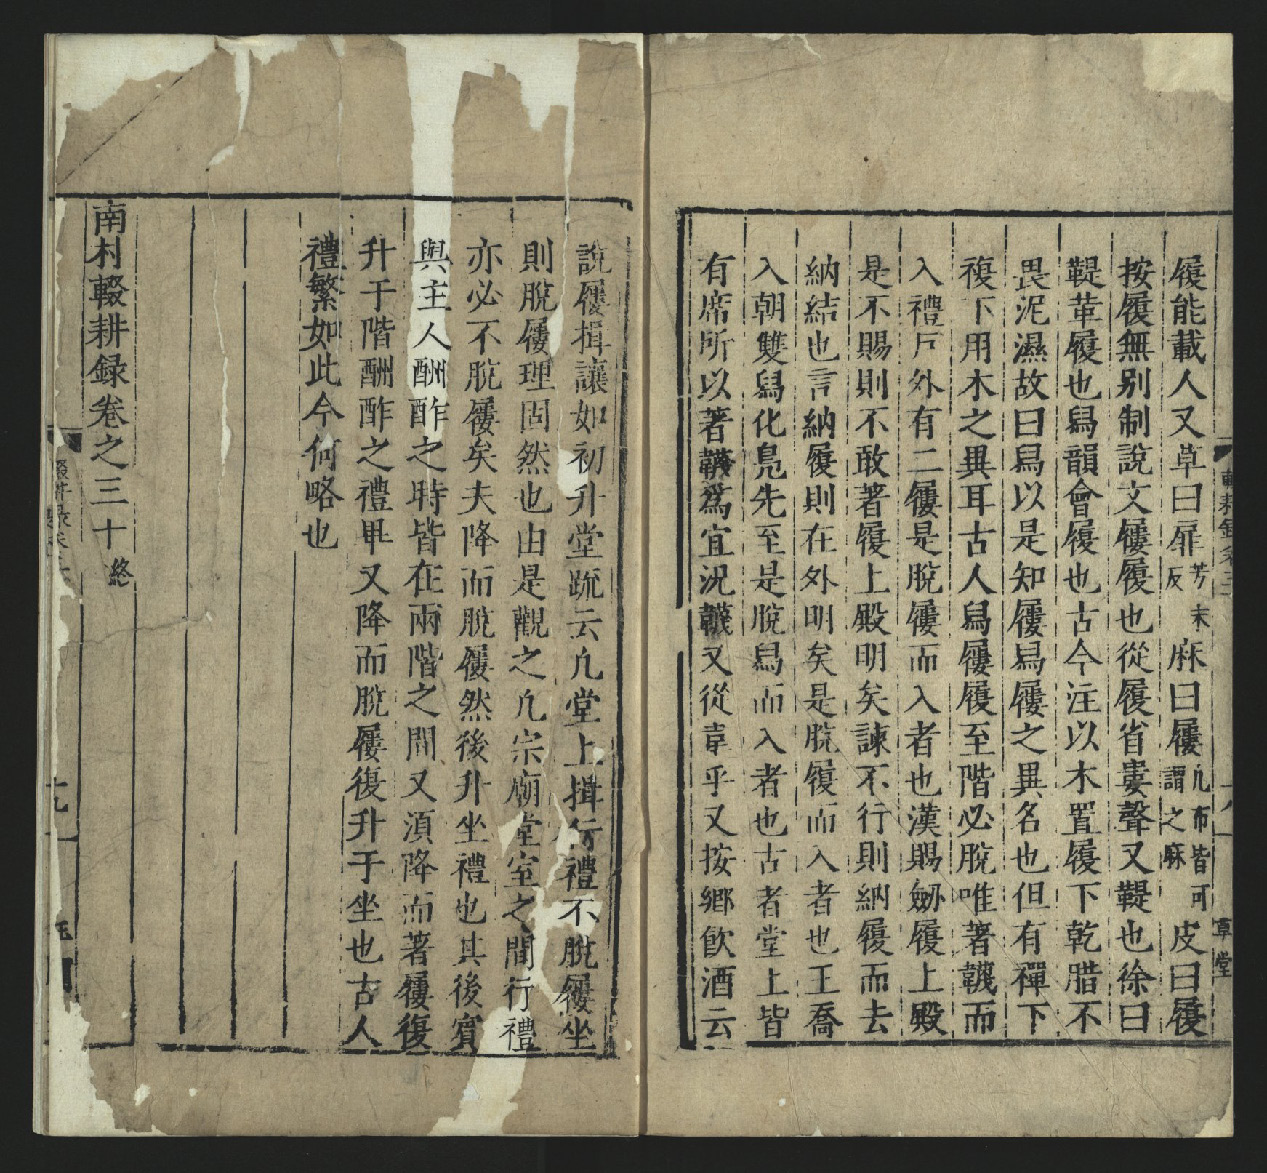 履能載人又草曰屝芳末反麻曰屨凡布皆可謂之麻皮曰履
按履無别制說文屨履也從履省婁聲又鞮也徐曰
鞮革履也舃韻會履也古今注以木置履下乾腊不
畏泥濕故曰舃以是知屨舃屨之異名也但有襌下
複下用木之異耳古人舃屨履至階必脫唯著韈而
入禮戶外有二屨是脫屨而入者也漢賜劒履上殿
是不賜則不敢著履上殿明矣諫不行則納履而去
納結也言納履則在外明矣是脫履而入者也王喬
入朝雙舃化鳧先至是脫舃而入者也古者堂上皆
有席所以著韈爲宜況韈又從韋乎又按鄉飲酒云
說屨揖讓如初升堂疏云凡堂上揖行禮不脫屨坐
則脫屨理固然也由是觀之凡宗廟堂室之間行禮
亦必不脫屨矣夫降而脫屨然後升坐禮也其後賓
與主人酬酢之時皆在兩階之間又湏降而著屨復
升于階酬酢之禮畢又降而脫屨復升于坐也古人
禮繁如此今何略也
南村輟耕録卷之三十 終